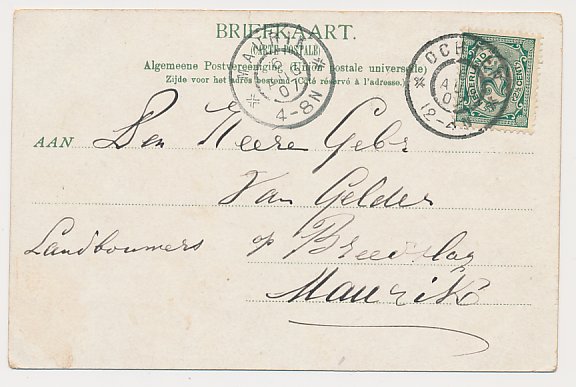 BRIEFKAART.
(CARTE POSTALE)
Algemeene Postvereeniging (Union postale universelle)
Zijde voor het adres bestemd (Côté réservé à l'adresse.)
MAURIK
07
4-8N
OCHTEN
12-4N
NEDERLAND
2½
AAN Den Heeren Gebr
Van Gelder
Landbouwers op Breedslag
Maurik